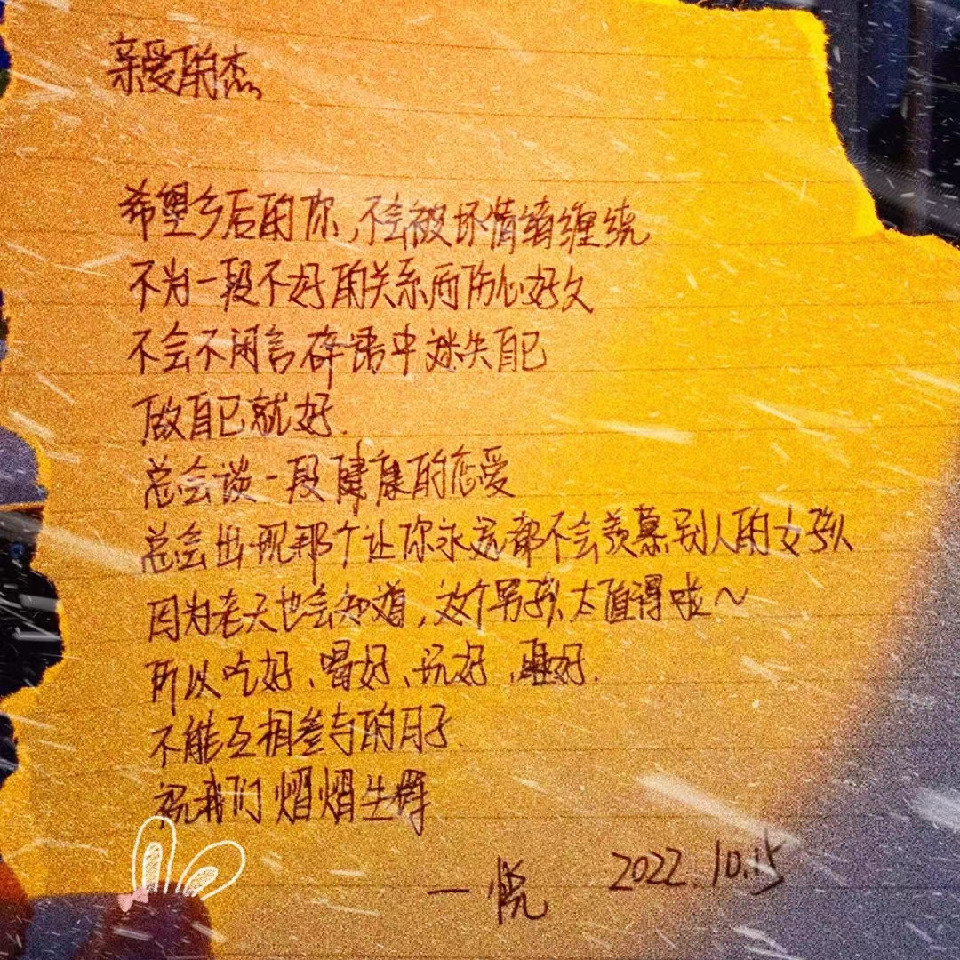 亲爱的杰
希望今后的你,不会被坏情绪缠绕
不为一段不好的关系而伤心好久
不会不闲言碎语中迷失自己
做自己就好.
总会谈一段健康的恋爱
总会出现那个让你永远都不会羡慕别人的女孩
因为老天也会知道,这个男孩太值得啦～
所以吃好、喝好、玩好、睡好.
不能互相参与的日子.
祝我们熠熠生辉
一悦 2022.10.15